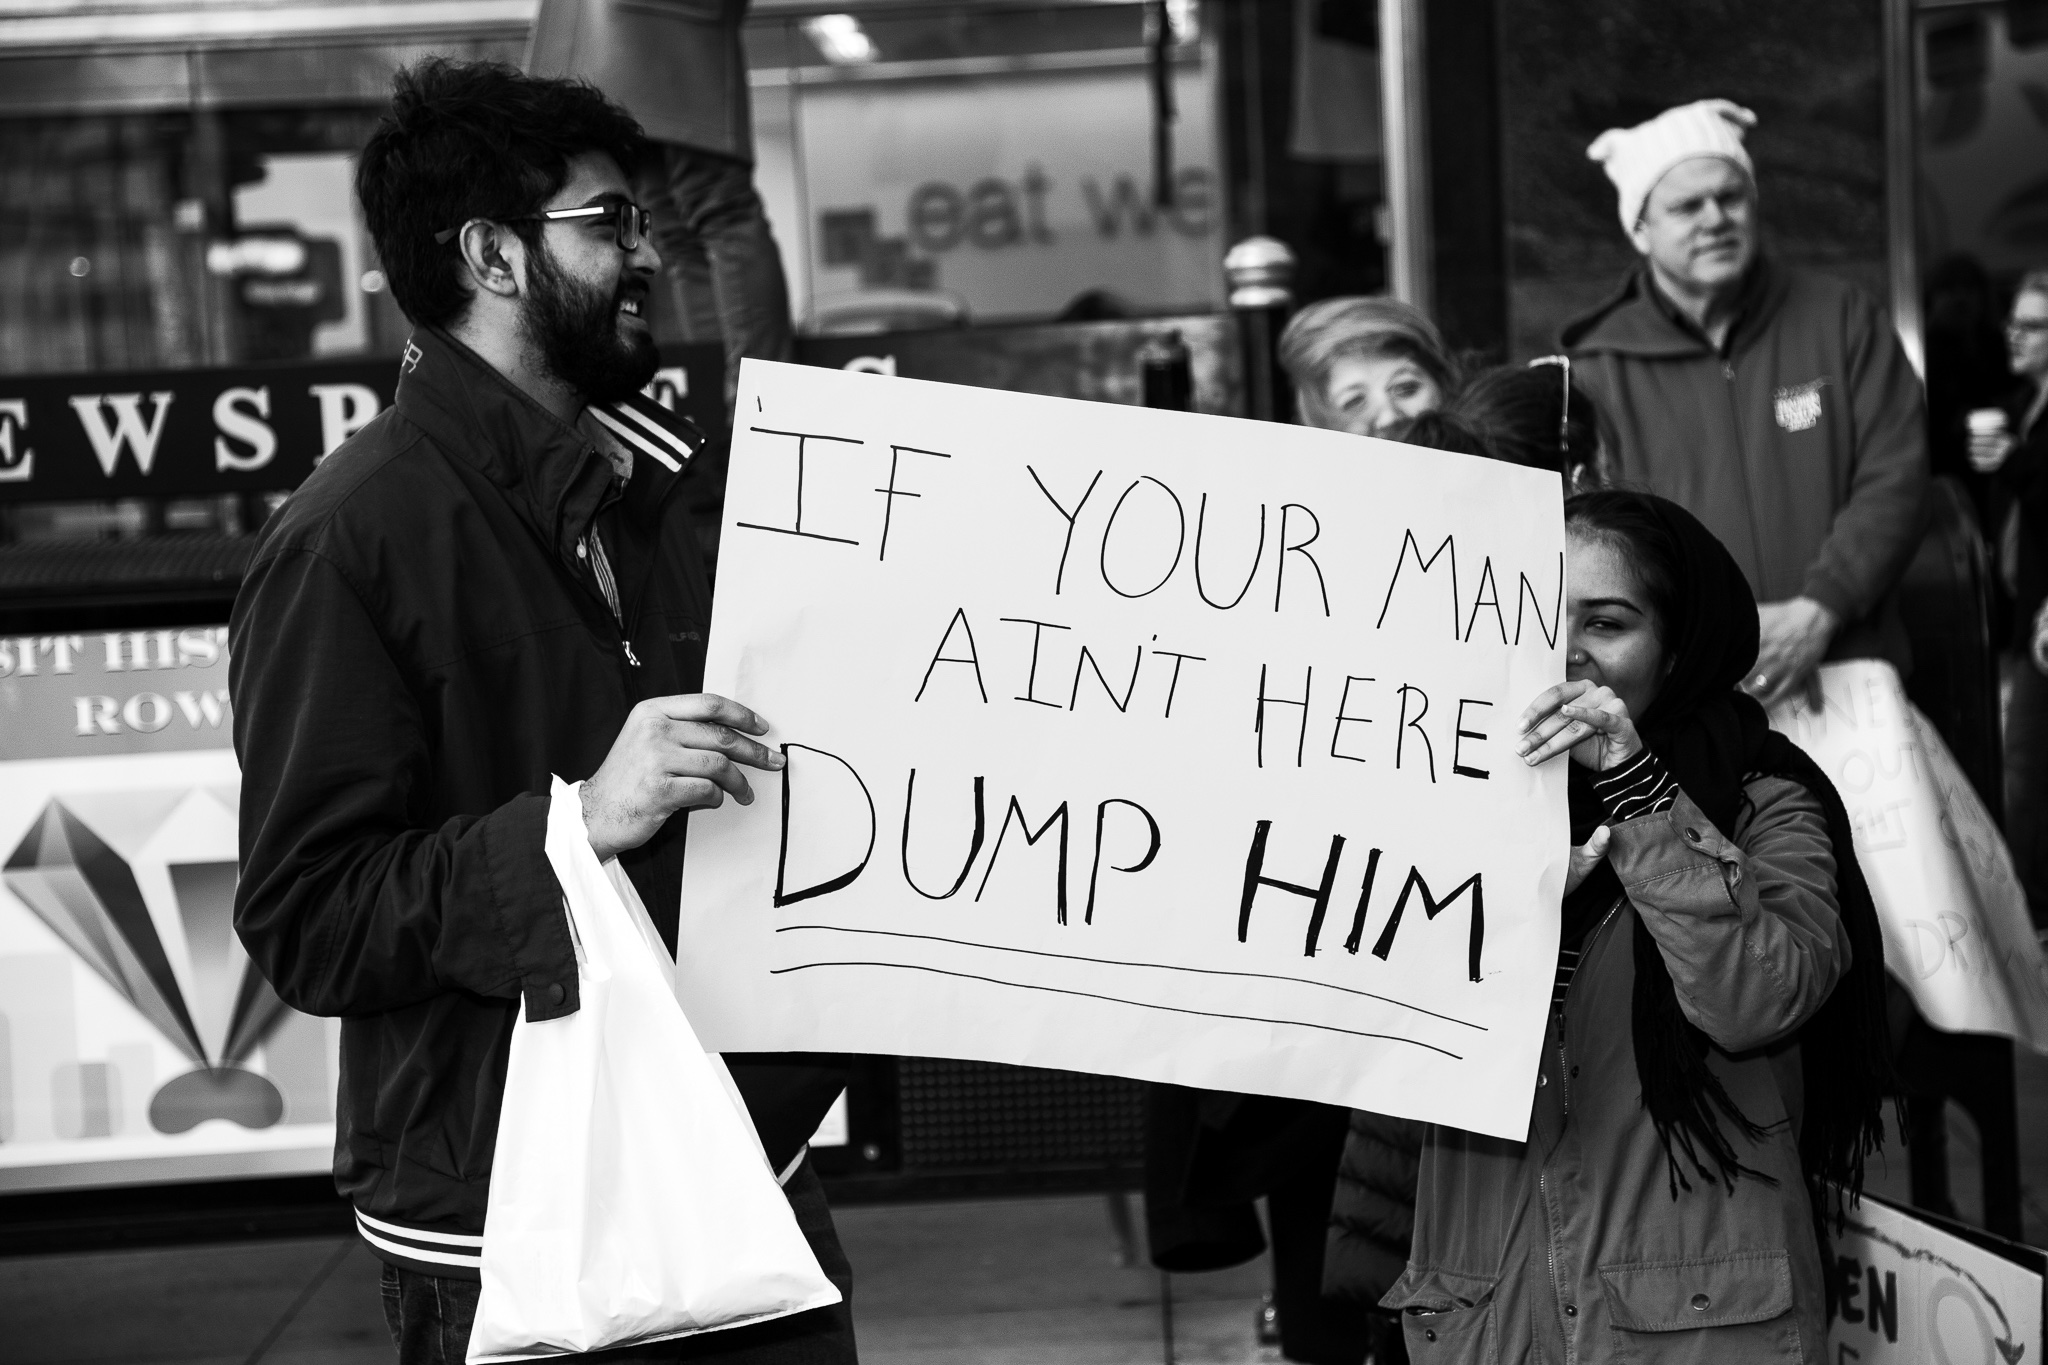 eat we
EWSP
SIT HIST
ROW
IF YOUR MAN
AIN'T HERE
DUMP HIM
OUT
EN